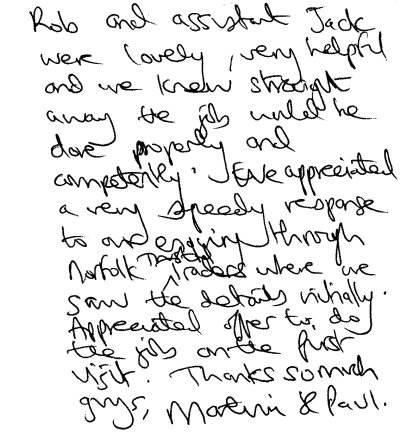 Rob and assistant Jack
were lovely, very helpful
and we knew straight
away the job would be
done properly and
competently. We appreciated
a very speedy response
to our enquiry through
Norfolk Trusted Traders where we
saw the details initially.
Appreciated offer to do
the job on the first
visit. Thanks so much
guys, & Paul.